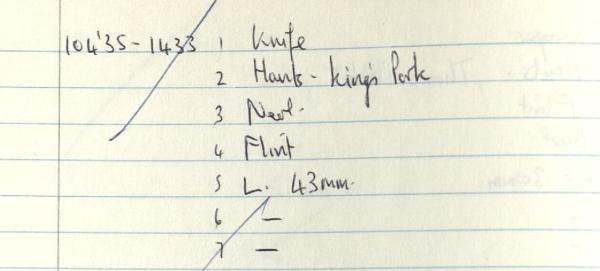 104'35-1433 1 Knife
2 Hants - King's Park
3 Neol.
4 Flint
5 L. 43mm.
6 —
7 —